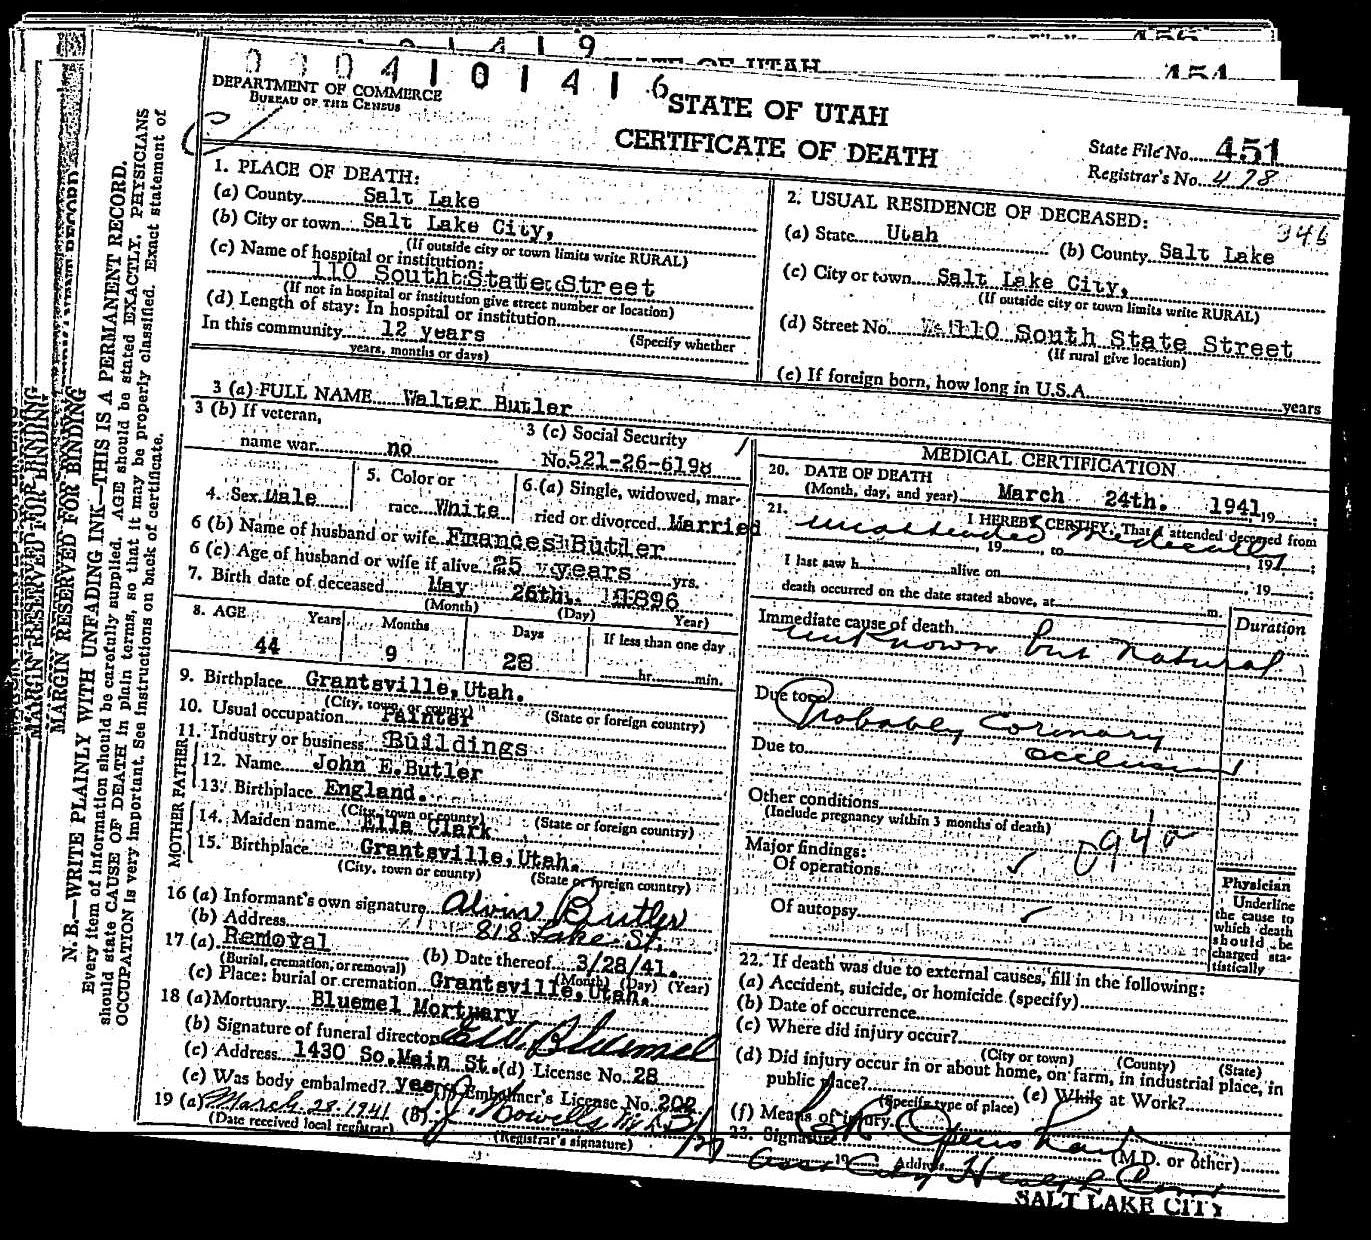 456
419
STATE OF UTAH
454
0004101416
DEPARTMENT OF COMMERCE
BUREAU OF THE CENSUS
STATE OF UTAH
CERTIFICATE OF DEATH
State File No. 451
Registrar's No. 478
1. PLACE OF DEATH:
(a) County Salt Lake
(b) City or town Salt Lake City,
(If outside city or town limits write RURAL)
(c) Name of hospital or institution:
110 South State Street
(If not in hospital or institution give street number or location)
(d) Length of stay: In hospital or institution
In this community 12 years (Specify whether
years, months or days)
2. USUAL RESIDENCE OF DECEASED: 346
(a) State Utah (b) County Salt Lake
(c) City or town Salt Lake City,
(If outside city or town limits write RURAL)
(d) Street No. 110 South State Street
(If rural give location)
(e) If foreign born, how long in U.S.A. years
3 (a) FULL NAME Walter Butler
3 (b) If veteran,
name war no
3 (c) Social Security
No. 521-26-6198
4. Sex Male
5. Color or
race White
6. (a) Single, widowed, mar-
ried or divorced Married
6 (b) Name of husband or wife Frances Butler
6 (c) Age of husband or wife if alive 25 years yrs.
7. Birth date of deceased May 26th. 1896
(Month) (Day) Year)
8. AGE Years Months Days If less than one day
44 9 28 hr. min.
9. Birthplace Grantsville, Utah.
(City, town, or county) (State or foreign country)
10. Usual occupation Painter
11. Industry or business Buildings
FATHER
12. Name John E. Butler
13. Birthplace England.
(City, town or county) (State or foreign country)
MOTHER
14. Maiden name Ella Clark
15. Birthplace Grantsville, Utah.
(City, town or county) (State or foreign country)
16 (a) Informant's own signature Alvin Butler
(b) Address 818 Lake St.
17 (a) Removal (b) Date thereof 3/28/41.
(Burial, cremation, or removal) (Month) (Day) (Year)
(c) Place: burial or cremation Grantsville, Utah.
18 (a) Mortuary Bluemel Mortuary
(b) Signature of funeral director E.W. Bluemel
(c) Address 1430 So. Main St. (d) License No. 28
(e) Was body embalmed? yes (f) Embalmer's License No. 202
19 (a) March 28, 1941 (b)
(Date received local registrar) (Registrar's signature)
MEDICAL CERTIFICATION
20. DATE OF DEATH
(Month, day, and year) March 24th. 1941 19 ;
21. I HEREBY CERTIFY, That I attended deceased from
unattended medically
, 19 , to , 19 ;
I last saw h alive on , 19 ;
death occurred on the date stated above, at m.
Immediate cause of death Duration
unknown but natural
Due to Probably Coronary
Due to occlusion
Other conditions
(Include pregnancy within 3 months of death)
Major findings:
Of operations
Of autopsy
Physician
Underline
the cause to
which death
should be
charged sta-
tistically
22. If death was due to external causes, fill in the following:
(a) Accident, suicide, or homicide (specify)
(b) Date of occurrence
(c) Where did injury occur?
(City or town) (County) (State)
(d) Did injury occur in or about home, on farm, in industrial place, in
public place? (e) While at Work?
(Specify type of place)
(f) Means of injury
23. Signature (M.D. or other)
19 Address City Health Com
SALT LAKE CITY
MARGIN RESERVED FOR BINDING
MARGIN RESERVED FOR BINDING
N. B.—WRITE PLAINLY WITH UNFADING INK—THIS IS A PERMANENT RECORD.
Every item of information should be carefully supplied. AGE should be stated EXACTLY. PHYSICIANS
should state CAUSE OF DEATH in plain terms, so that it may be properly classified. Exact statement of
OCCUPATION is very important. See instructions on back of certificate.